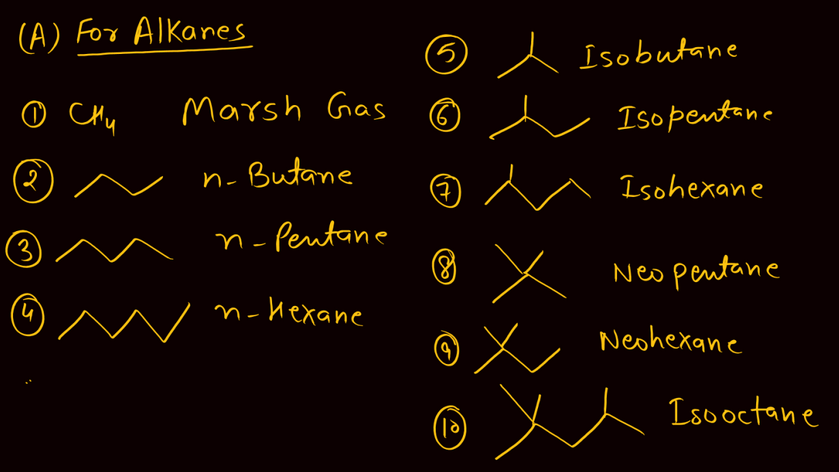 (A) For Alkanes
① CH4 Marsh Gas
② n-Butane
③ n-Pentane
④ n-Hexane
⑤ Isobutane
⑥ Isopentane
⑦ Isohexane
⑧ Neopentane
⑨ Neohexane
⑩ Isooctane